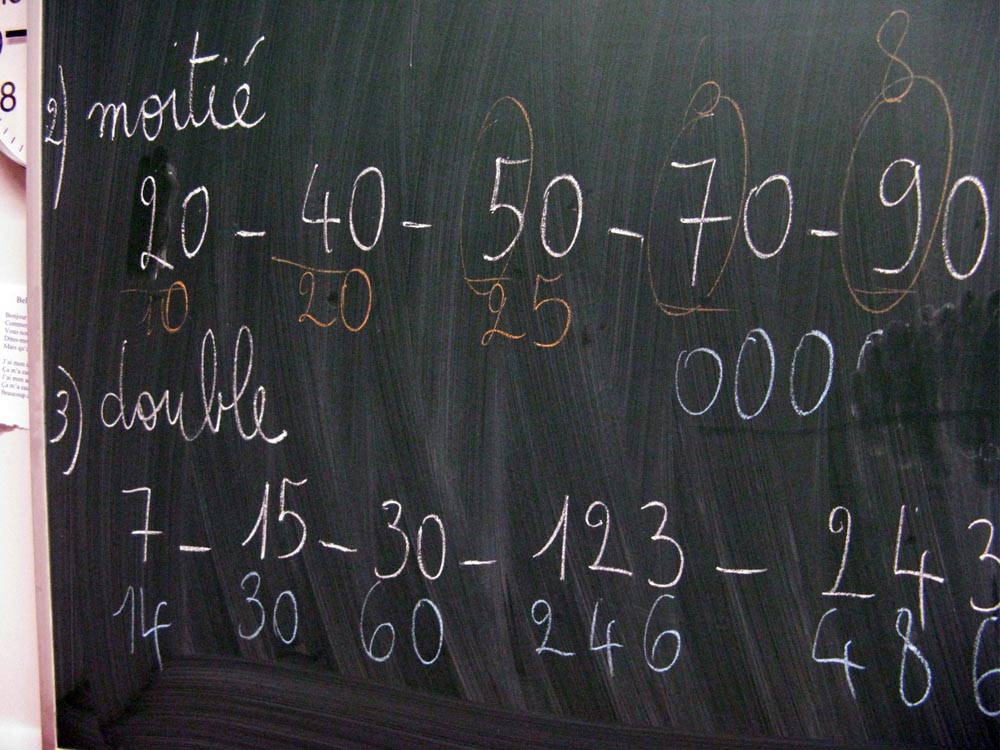 8
2) moitié
8
20 - 40 - 50 - 70 - 90
10 20 25
000
3) double
7 - 15 - 30 - 123 - 243
14 30 60 246 486